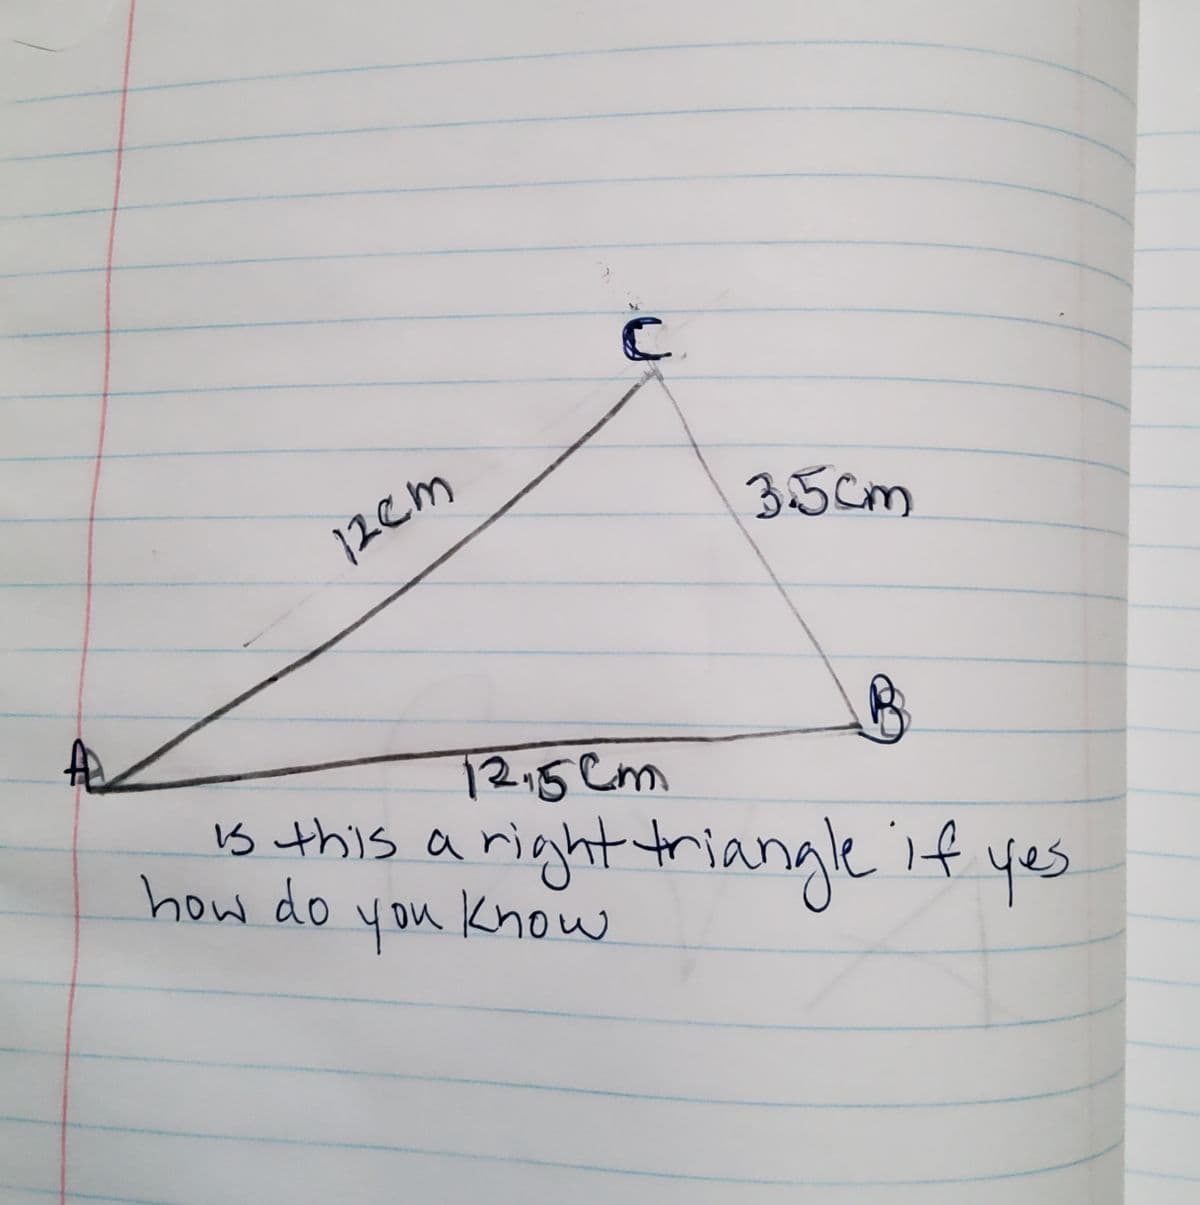 C
12cm
3.5cm
B
A
12.5cm
is this a right triangle if yes
how do you know